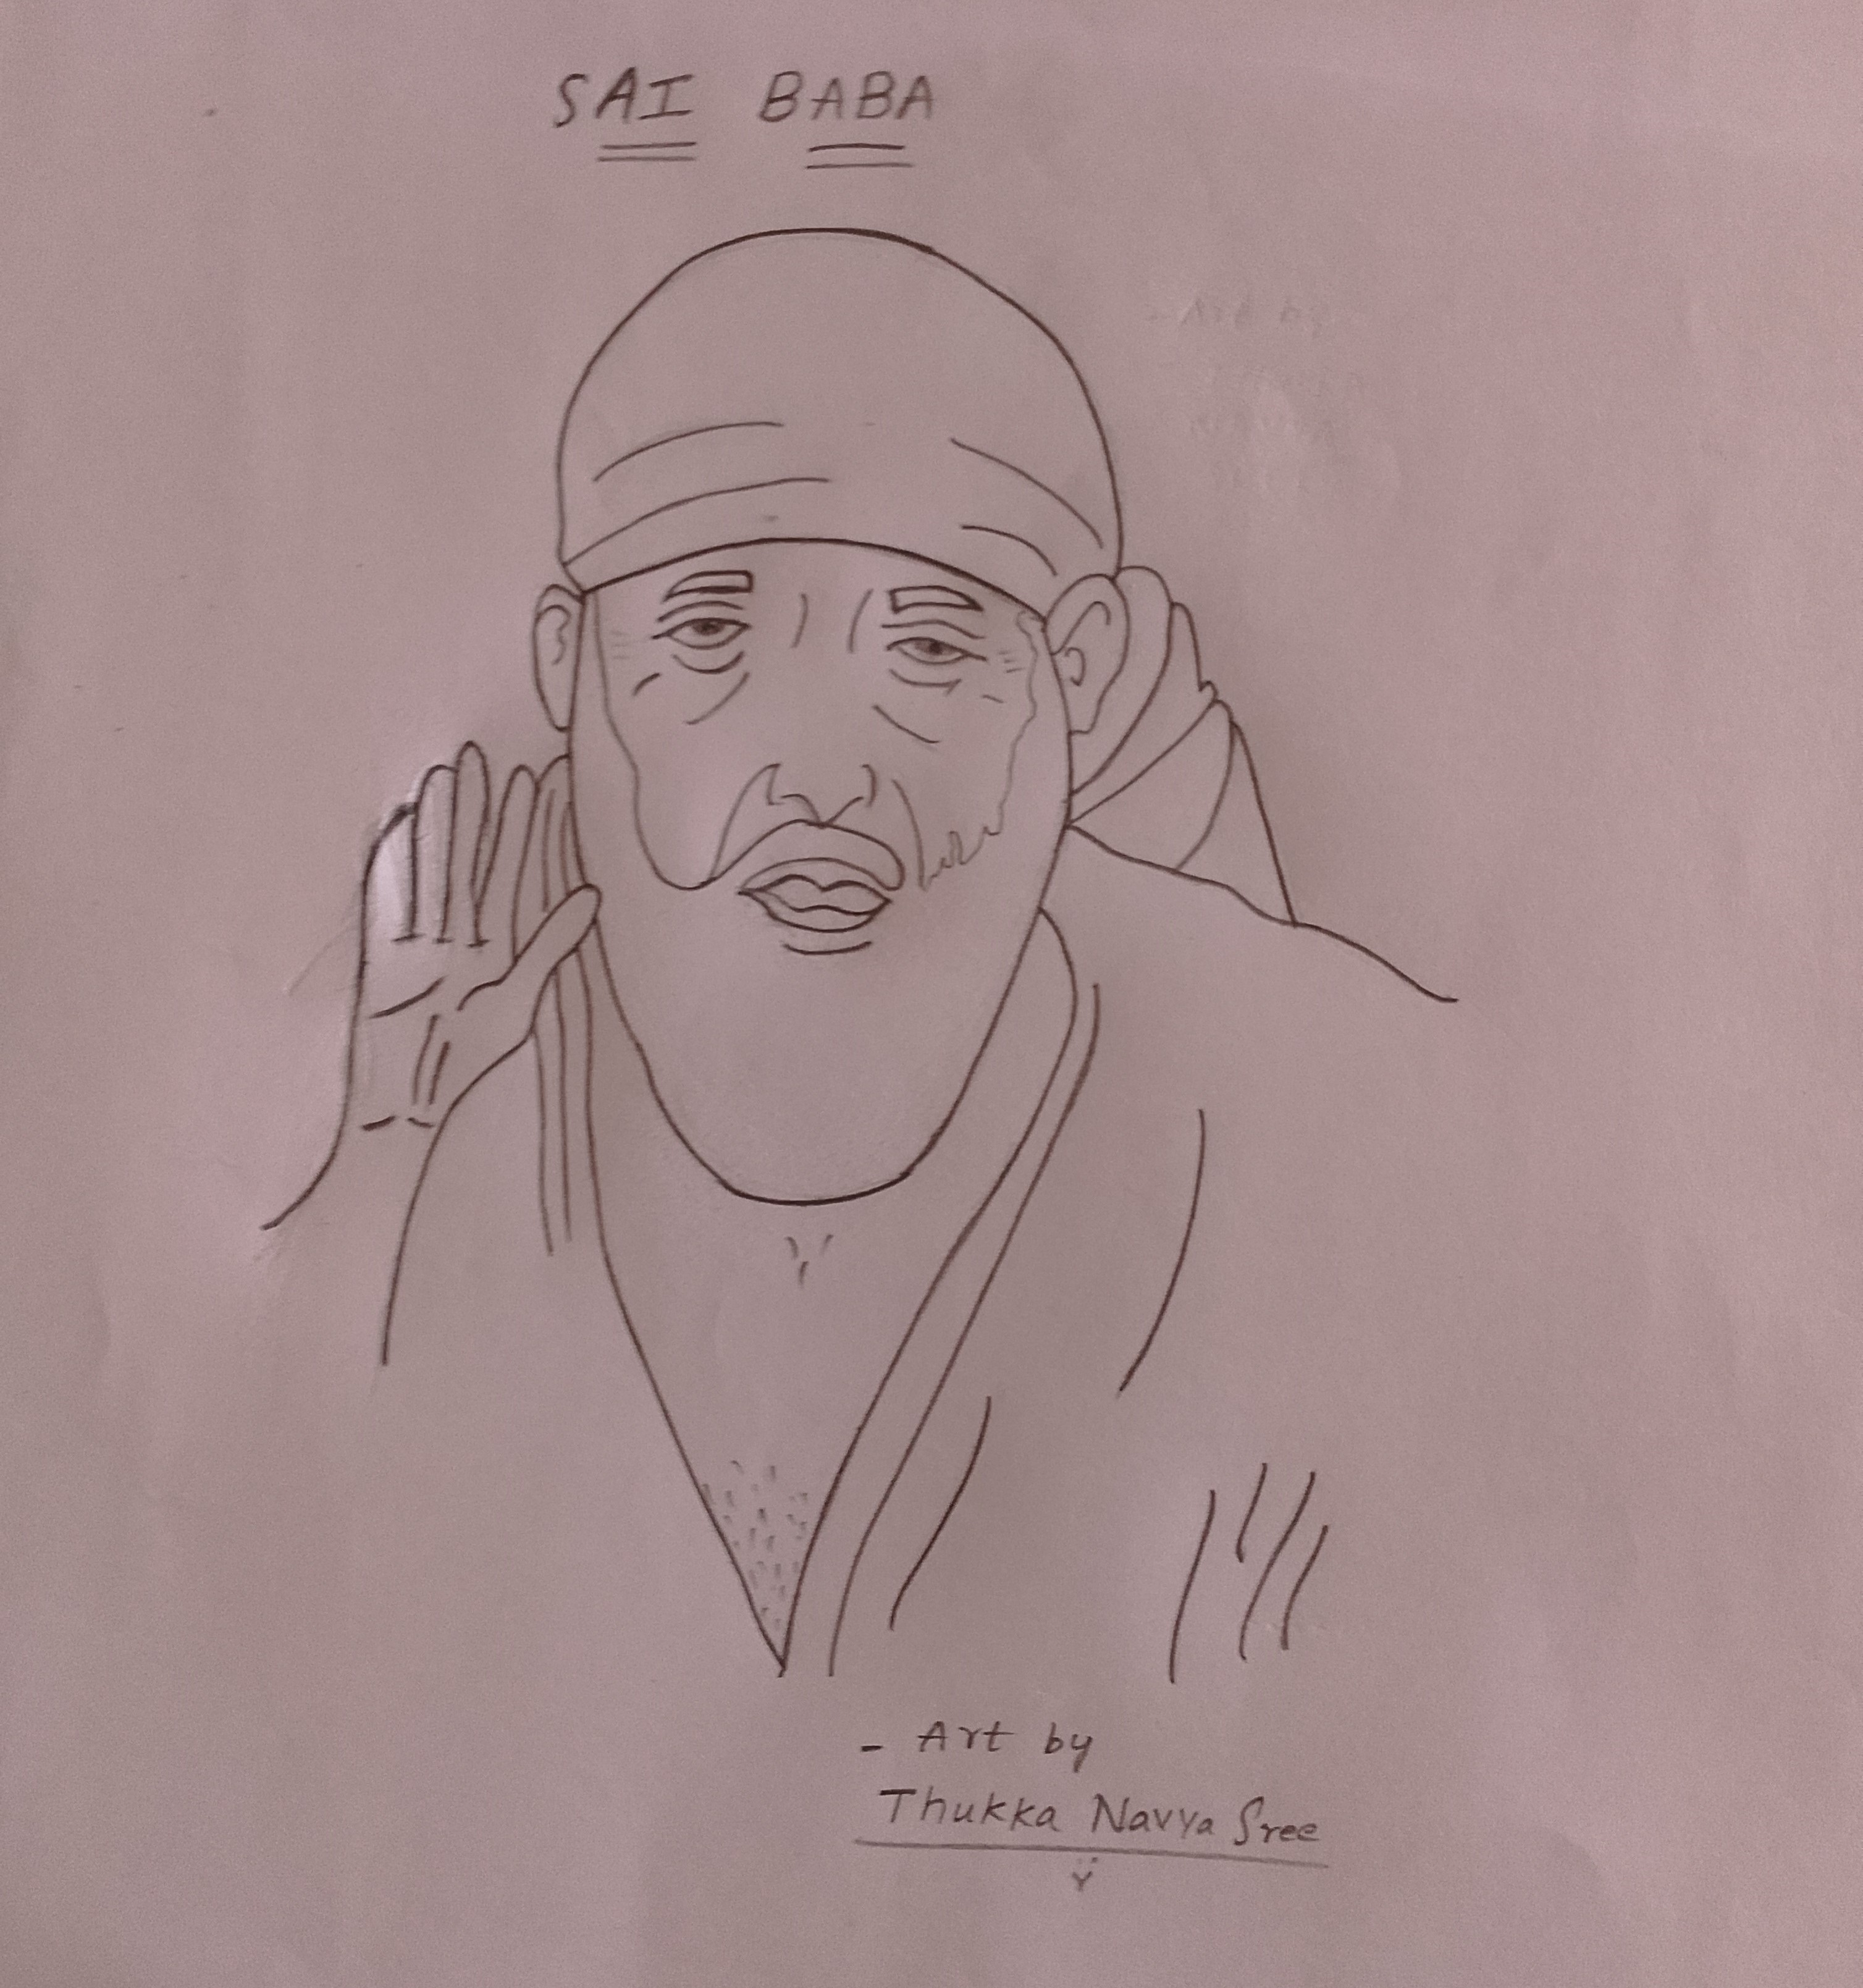 SAI BABA
- Art by
Thukka Navya Sree